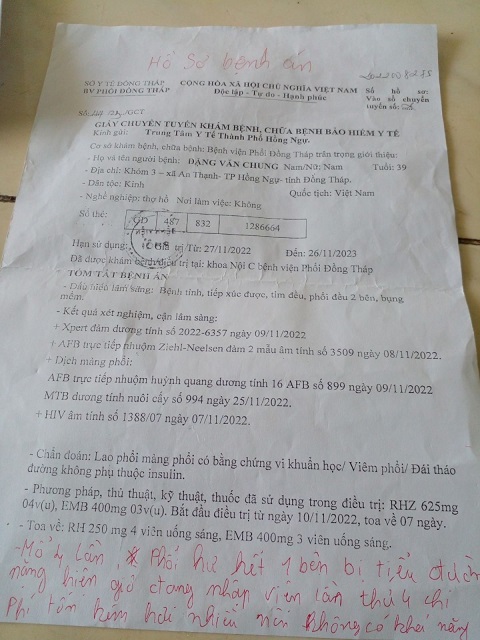 Hồ Sơ bệnh án
SỞ Y TẾ ĐỒNG THÁP
BV PHỔI ĐỒNG THÁP
CỘNG HÒA XÃ HỘI CHỦ NGHĨA VIỆT NAM
Độc lập - Tự do - Hạnh phúc
Số hồ sơ:
Vào sổ chuyển
tuyến số:
Số: /GCT
GIẤY CHUYỂN TUYẾN KHÁM BỆNH, CHỮA BỆNH BẢO HIỂM Y TẾ
Kính gửi: Trung Tâm Y Tế Thành Phố Hồng Ngự.
Cơ sở khám bệnh, chữa bệnh: Bệnh viện Phổi Đồng Tháp trân trọng giới thiệu:
- Họ và tên người bệnh: ĐẶNG VĂN CHUNG Nam/Nữ: Nam Tuổi: 39
- Địa chỉ: Khóm 3 – xã An Thạnh- TP Hồng Ngự- tỉnh Đồng Tháp.
- Dân tộc: Kinh Quốc tịch: Việt Nam
- Nghề nghiệp: thợ hồ Nơi làm việc: Không
Số thẻ: 487 832 1286664
Hạn sử dụng: trị/Từ: 27/11/2022 Đến: 26/11/2023
Đã được khám bệnh/điều trị tại: khoa Nội C bệnh viện Phổi Đồng Tháp
TÓM TẮT BỆNH ÁN
- Dấu hiệu lâm sàng: Bệnh tỉnh, tiếp xúc được, tim đều, phổi đều 2 bên, bụng
mềm.
- Kết quả xét nghiệm, cận lâm sàng:
+ Xpert đàm dương tính số 2022-6357 ngày 09/11/2022
+ AFB trực tiếp nhuộm Ziehl-Neelsen đàm 2 mẫu âm tính số 3509 ngày 08/11/2022.
+ Dịch màng phổi:
AFB trực tiếp nhuộm huỳnh quang dương tính 16 AFB số 899 ngày 09/11/2022
MTB dương tính nuôi cấy số 994 ngày 25/11/2022.
+ HIV âm tính số 1388/07 ngày 07/11/2022.
- Chẩn đoán: Lao phổi màng phổi có bằng chứng vi khuẩn học/ Viêm phổi/ Đái tháo
đường không phụ thuộc insulin.
- Phương pháp, thủ thuật, kỹ thuật, thuốc đã sử dụng trong điều trị: RHZ 625mg
04v(u), EMB 400mg 03v(u). Bắt đầu điều trị từ ngày 10/11/2022, toa về 07 ngày.
- Toa về: RH 250 mg 4 viên uống sáng, EMB 400mg 3 viên uống sáng.
- Mổ 4 lần, Phổi hư hết 1 bên bị tiểu đường
nặng hiện giờ đang nhập viện lần thứ 4 chi
Phí tốn kém khá nhiều nên không có khả năng